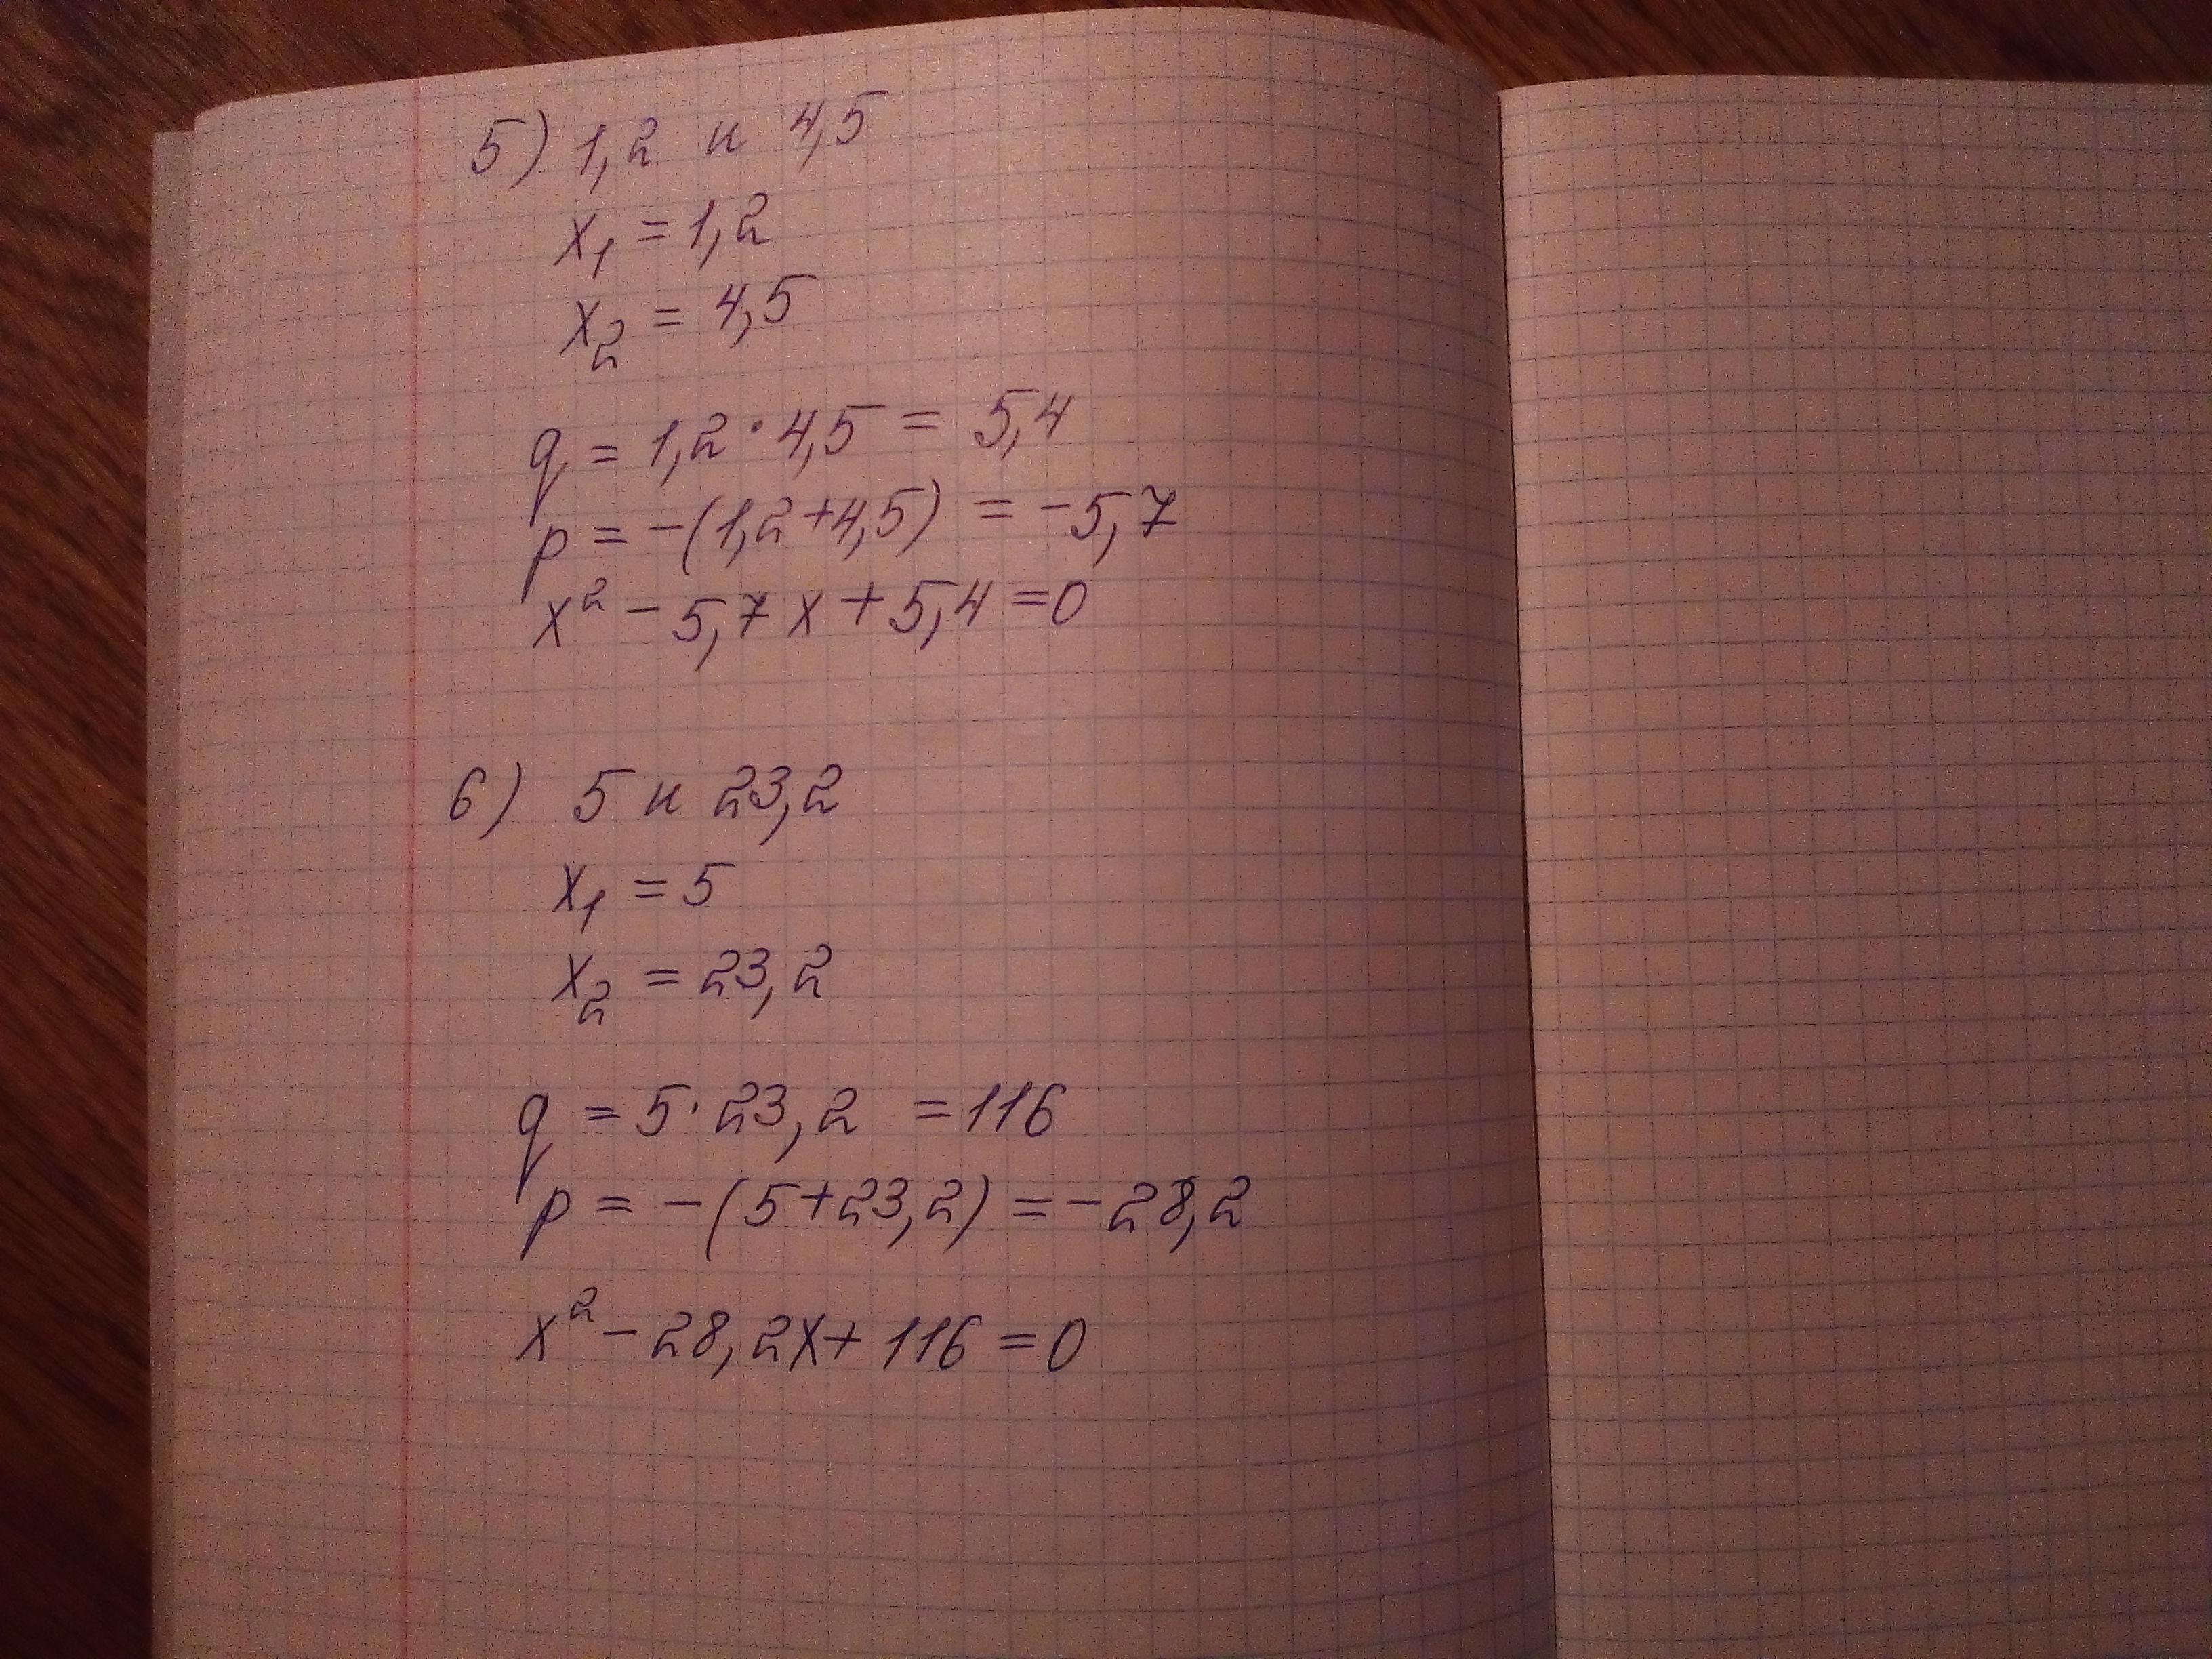 5) 1,2 и 4,5
x₁ = 1,2
x₂ = 4,5
q = 1,2 · 4,5 = 5,4
p = -(1,2+4,5) = -5,7
x² - 5,7x + 5,4 = 0
6) 5 и 23,2
x₁ = 5
x₂ = 23,2
q = 5 · 23,2 = 116
p = -(5+23,2) = -28,2
x² - 28,2x + 116 = 0